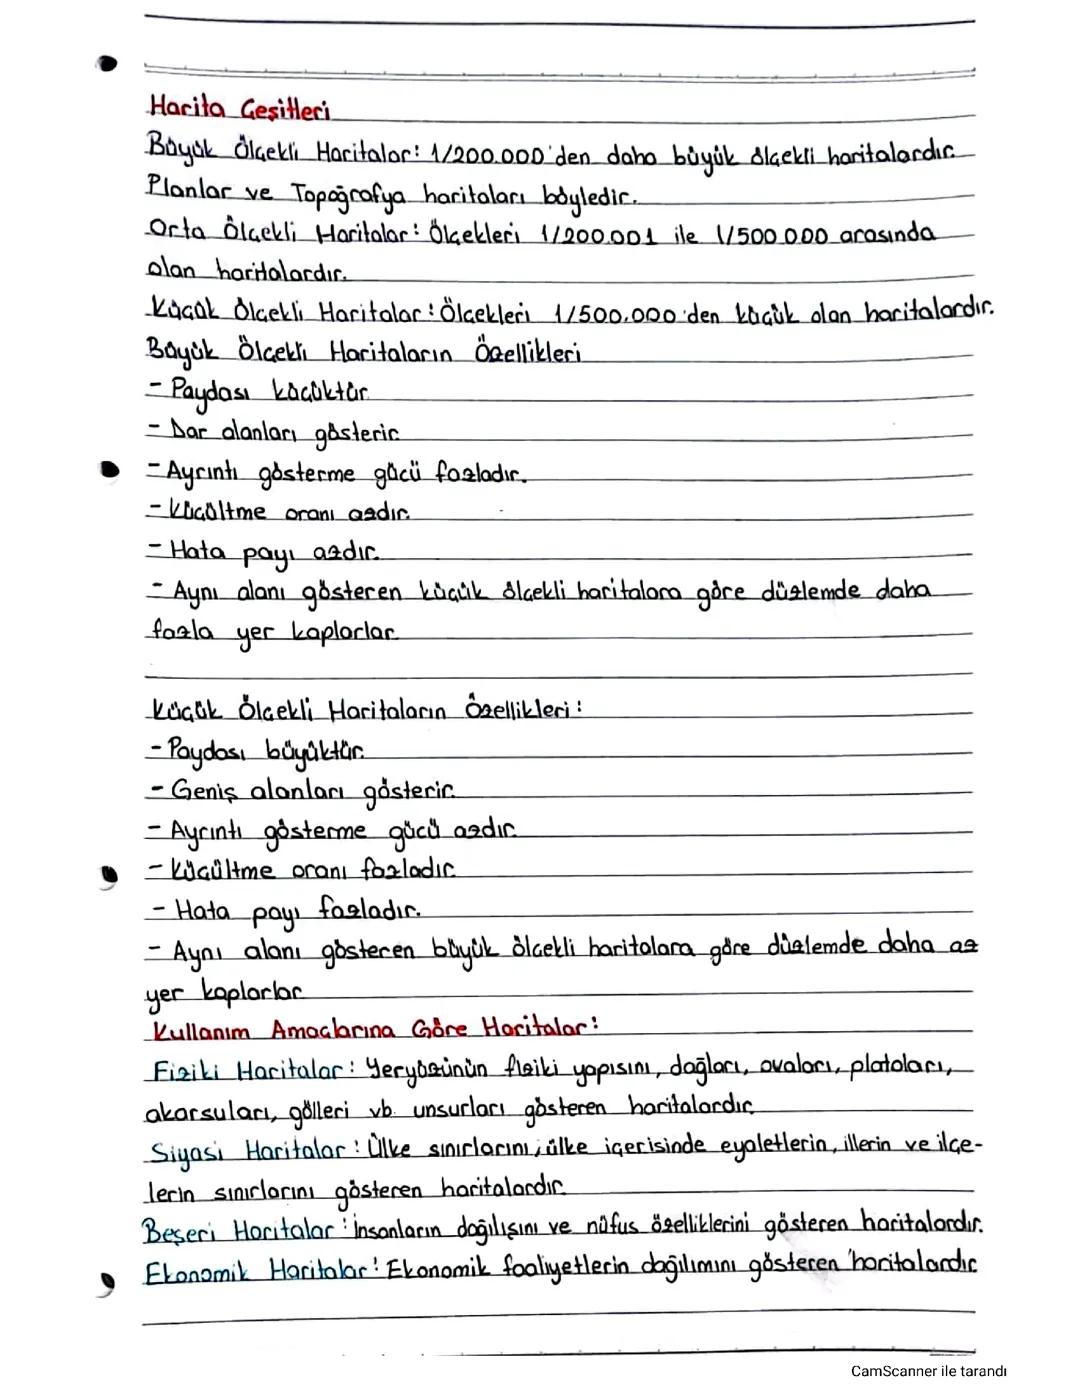 Harita Çeşitleri
Büyük Ölçekli Haritalar: 1/200.000'den daha büyük ölçekli haritalardır.
Planlar ve Topoğrafya haritaları böyledir.
Orta Ölçekli Haritalar: Ölçekleri 1/200.001 ile 1/500.000 arasında
olan haritalardır.
Küçük Ölçekli Haritalar: Ölçekleri 1/500.000'den küçük olan haritalardır.
Büyük Ölçekli Haritaların Özellikleri
- Paydası küçüktür.
- Dar alanları gösterir.
- Ayrıntı gösterme gücü fazladır.
- Küçültme oranı azdır.
- Hata payı azdır.
- Aynı alanı gösteren küçük ölçekli haritalara göre düzlemde daha
fazla yer kaplarlar.
Küçük Ölçekli Haritaların Özellikleri:
- Paydası büyüktür.
- Geniş alanları gösterir.
- Ayrıntı gösterme gücü azdır.
- Küçültme oranı fazladır.
- Hata payı fazladır.
- Aynı alanı gösteren büyük ölçekli haritalara göre düzlemde daha az
yer kaplarlar.
Kullanım Amaçlarına Göre Haritalar:
Fiziki Haritalar: Yeryüzünün fiziki yapısını, dağları, ovaları, platoları,
akarsuları, gölleri vb. unsurları gösteren haritalardır.
Siyasi Haritalar: Ülke sınırlarını, ülke içerisinde eyaletlerin, illerin ve ilçe-
lerin sınırlarını gösteren haritalardır.
Beşeri Haritalar: İnsanların dağılışını ve nüfus özelliklerini gösteren haritalardır.
Ekonomik Haritalar: Ekonomik faaliyetlerin dağılımını gösteren haritalardır
CamScanner ile tarandı